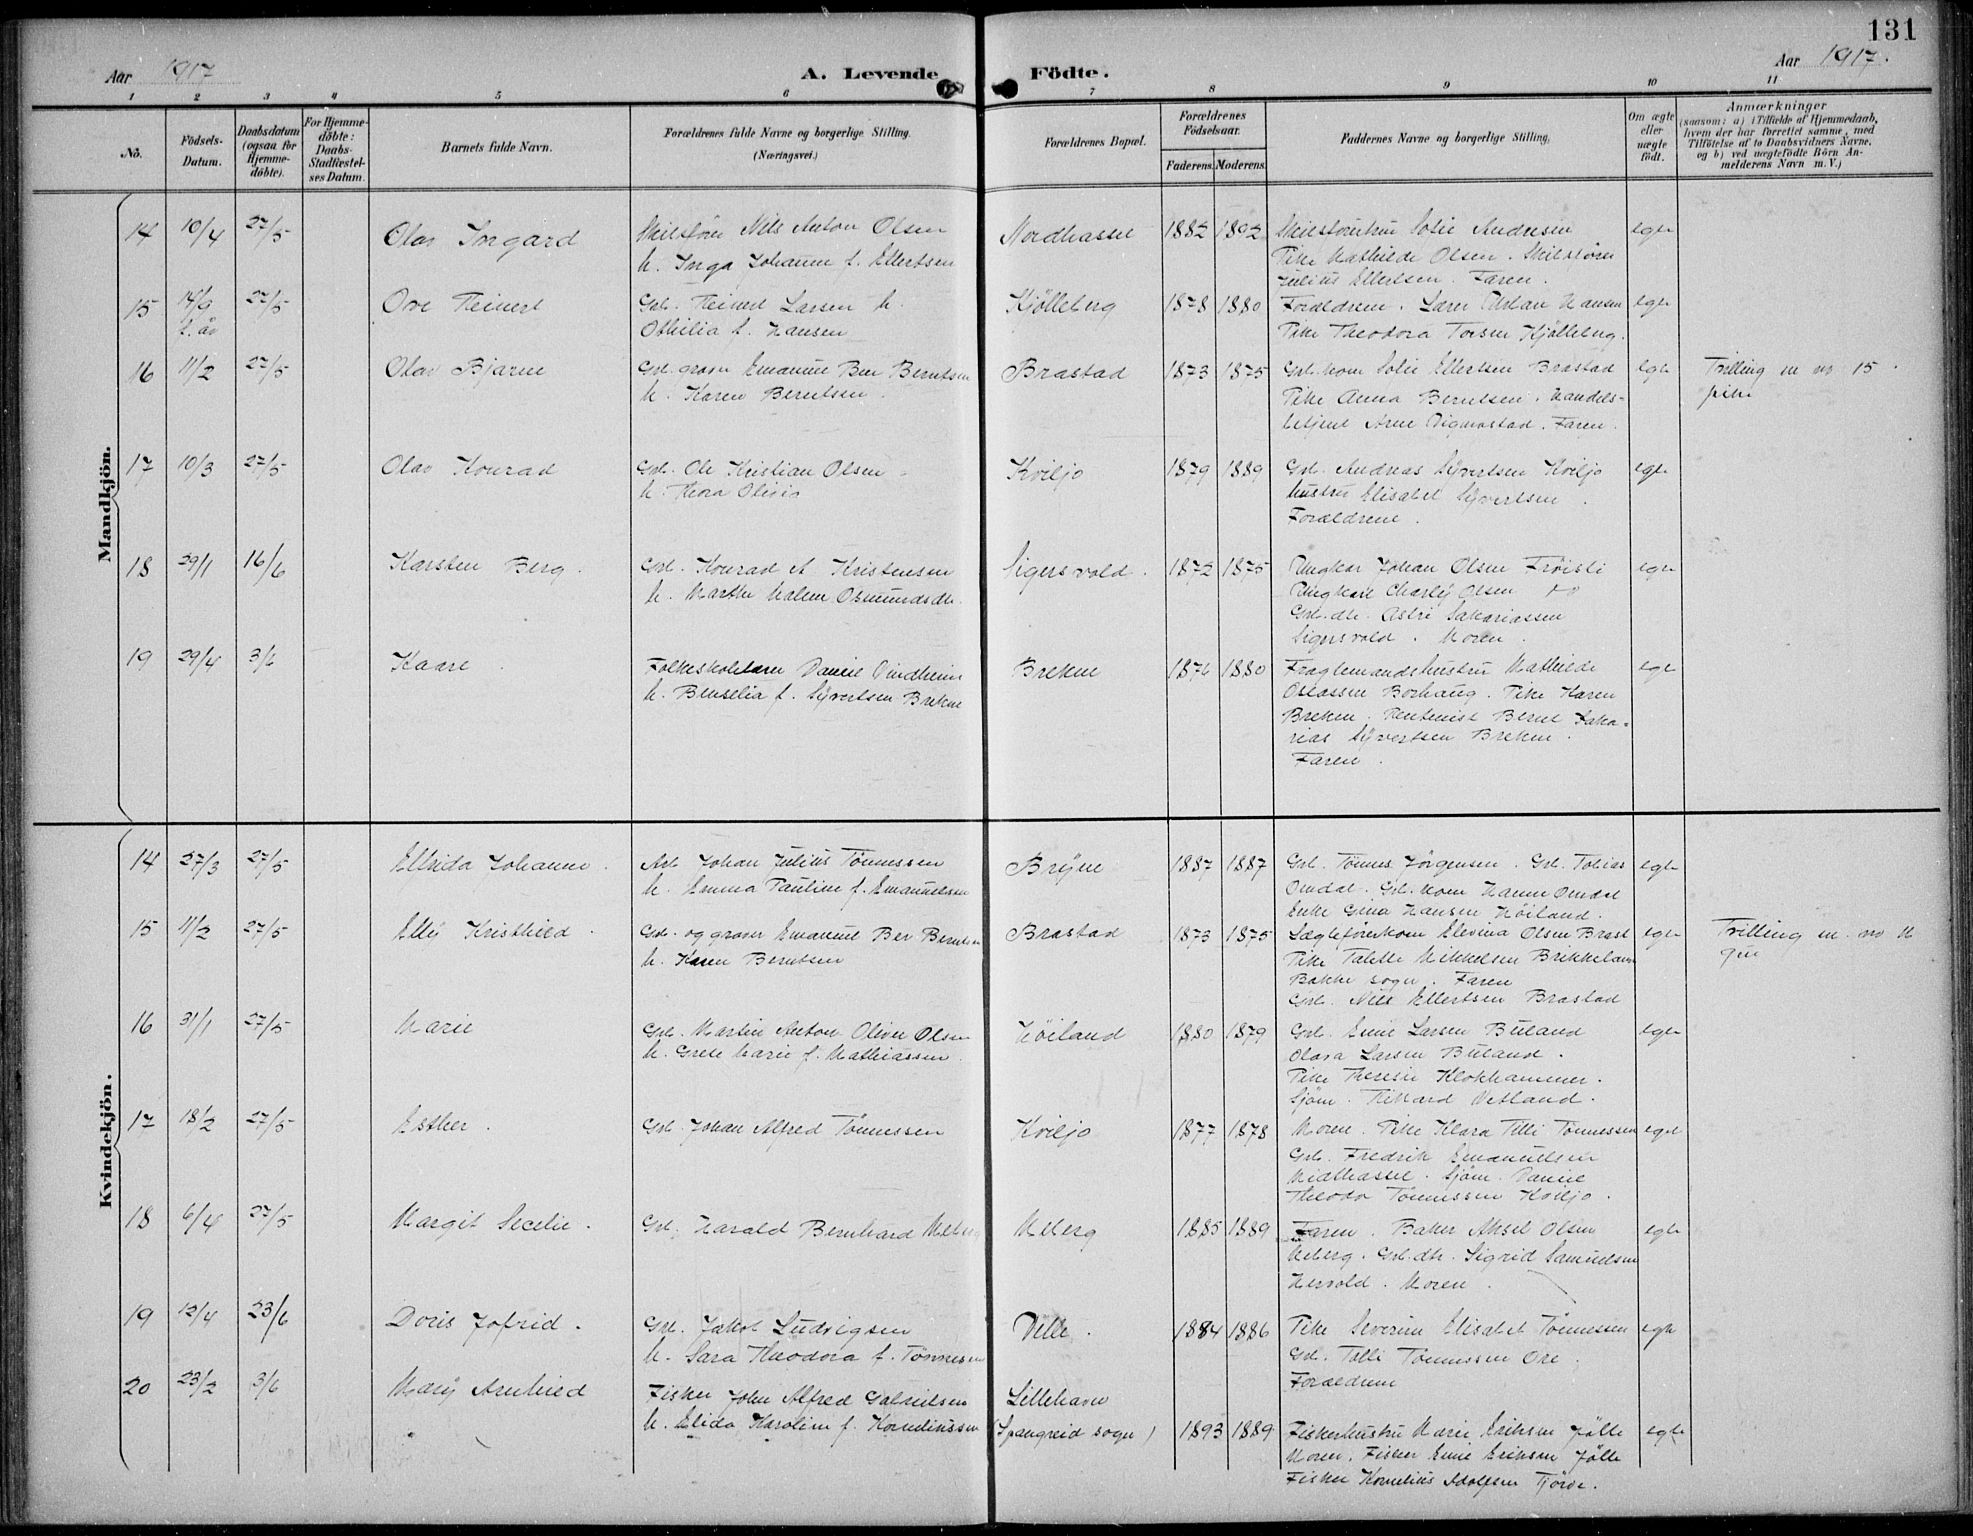 131
Aar 1917
A. Levende Födte.
Aar 1917.
1 2 3 4 5 6 7 8 9 10 11
No.
Födsels-Datum.
Daabsdatum (ogsaa for Hjemme-döbte).
For Hjemme-döbte: Daabs-Stadfæstel-ses Datum.
Barnets fulde Navn.
Forældrenes fulde Navne og borgerlige Stilling. (Næringsvei.)
Forældrenes Bopæl.
Forældrenes Födselsaar.
Faderens. Moderens.
Faddernes Navne og borgerlige Stilling.
Om ægte eller uægte födt.
Anmærkninger
(saasom: a) i Tilfælde af Hjemmedaab,
hvem der har forrettet samme, med
Tilföielse af to Daabsvidners Navne,
og b) ved uægtefödte Börn An-
melderens Navn m. V.)
Mandkjön.
14 10/4 27/5 Olav Ingard
Nils Anton Olsen
h. Inga Johanne f. Ellertsen
Nordhassel 1882 1892
Sofie Andresen
Pike Mathilde Olsen.
Julius Ellertsen. Faren.
egte
15 27/5 Ove Reinert
Gbr. Reinert Larsen h
Othilia f. Hansen
Kjölleberg 1878 1880
Forældrene. Hansen
Pike Theodora Kjölleberg.
egte
16 11/2 27/5 Olav Bjarne
Emanuel Ber Berntsen
h. Karen Berntsen.
Brastad 1873 1875
Gbr. kone Sofie Ellertsen Brastad
Pike Anna Berntsen. Handels-
betjent Arne Vigmostad. Faren.
egte
Tvilling m no 15
pike
17 10/3 27/5 Olav Konrad
Gbr. Ole Kristian Olsen
h. Thora
Kviljo 1879 1889
Gbr. Andreas Syvertsen Kviljo
hustru Elisabet Syvertsen.
Forældrene.
egte
18 29/1 16/6 Karsten Berg.
Gbr. Konrad A Kristensen
h. Marthe Malene Osmundsdtr.
Sigersvold. 1872 1875
Ungkar Johan Olsen
Ungkarl Charly Olsen
Gbr. dtr. Astri Sakariassen
Sigersvold. Moren.
egte
19 29/4 3/6 Kaare.
Folkeskolelærer Daniel Vindheim
h. Benselia f. Syvertsen Brekne
Brekne 1876 1880
Fragtemandshustru Mathilde
Borhaug. Pike Karen
Brekne. Bernt Saka-
rias Syvertsen Brekne.
Faren.
egte
Kvindekjön.
14 27/3 27/5 Johanne.
Arb. Johan Julius Tönnessen
h. Emma Pauline f. Emanuelsen
Bryne 1887 1887
Gbr. Tönnes Jörgensen. Gbr. Tobias
Omdal. Gbr. kone Hanne Omdal
Enke Gina Hansen Höiland.
egte
15 11/2 27/5 Elly Kristhild.
Gbr. og graver Emanuel Ber Berntsen
h. Karen Berntsen
Brastad 1873 1875
Elevina Olsen Brast
Pike Talette Mikkelsen
Bakke sogn. Faren
Gbr. Nils Ellertsen Brastad
egte
Tvilling m. no 16
gut
16 31/1 27/5 Marie
Gbr. Martin Anton Oliver Olsen
h. Grete Marie f. Mathiassen.
Höiland 1880 1879
Gbr. Emil Larsen Buland
Olava Larsen Buland.
Pike Theresie Klokhammer.
Sjöm. Rikard Vetland.
egte
17 18/2 27/5 Esther.
Gbr. Johan Alfred Tönnessen
Kviljo 1877 1878
Moren. Pike Klara Tilli Tönnessen
Gbr. Fredrik Emanuelsen
Midthassel. Sjöm. Daniel
Theodor Tönnessen Kviljo.
egte
18 6/4 27/5 Margit Secelie.
Gbr. Harald Bernhard Meberg
Meberg 1885 1889
Faren. Baker Aksel Olsen
Meberg. Gbr. dtr. Sigrid Samuelsen
Hervold. Moren.
egte
19 12/4 23/6 Doris Jofrid.
Gbr. Jakob Ludvigsen
h. Sara Theodora f. Tönnesen
Velle. 1884 1886
Pike Severine Elisabet Tönnessen
Gbr. Tolli Tönnessen Ore.
Forældrene
egte
20 23/2 3/6 Mary Arnhild
Fisker John Alfred Gabrielsen
h. Elida Karoline f. Korneliussen
Lillehavn
(Spangreid sogn) 1893 1889
Fiskerhustru Marie Eriksen Jölle
Moren. Fisker Emil Eriksen Jölle
Fisker Kornelius Adolfsen Tjörve.
egte